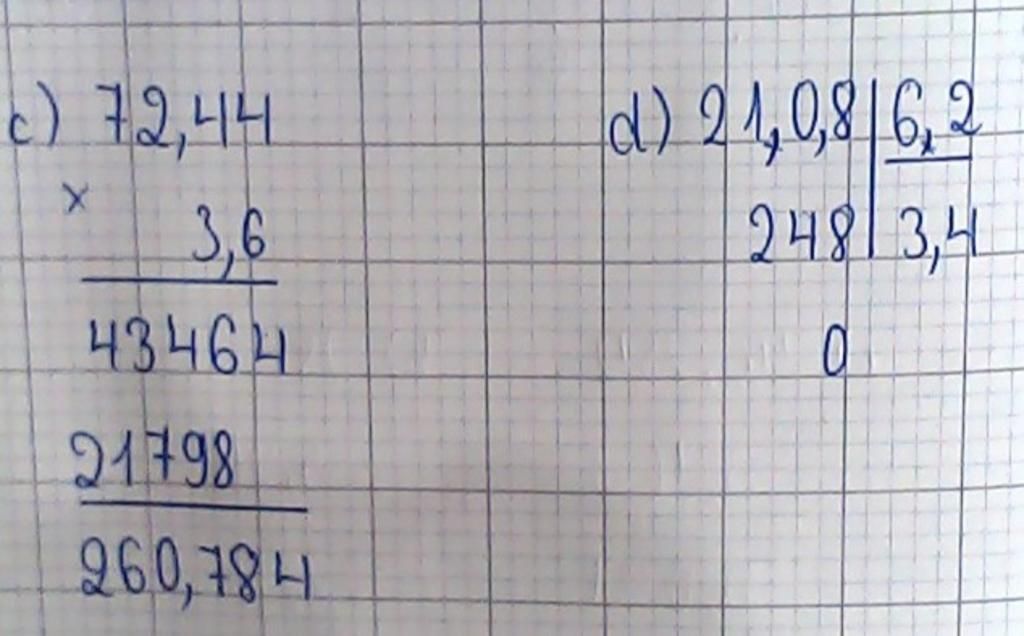 c) 72,44
×
3,6
43464
21798
260,784
d) 21,0,8 | 6,2
248 | 3,4
0